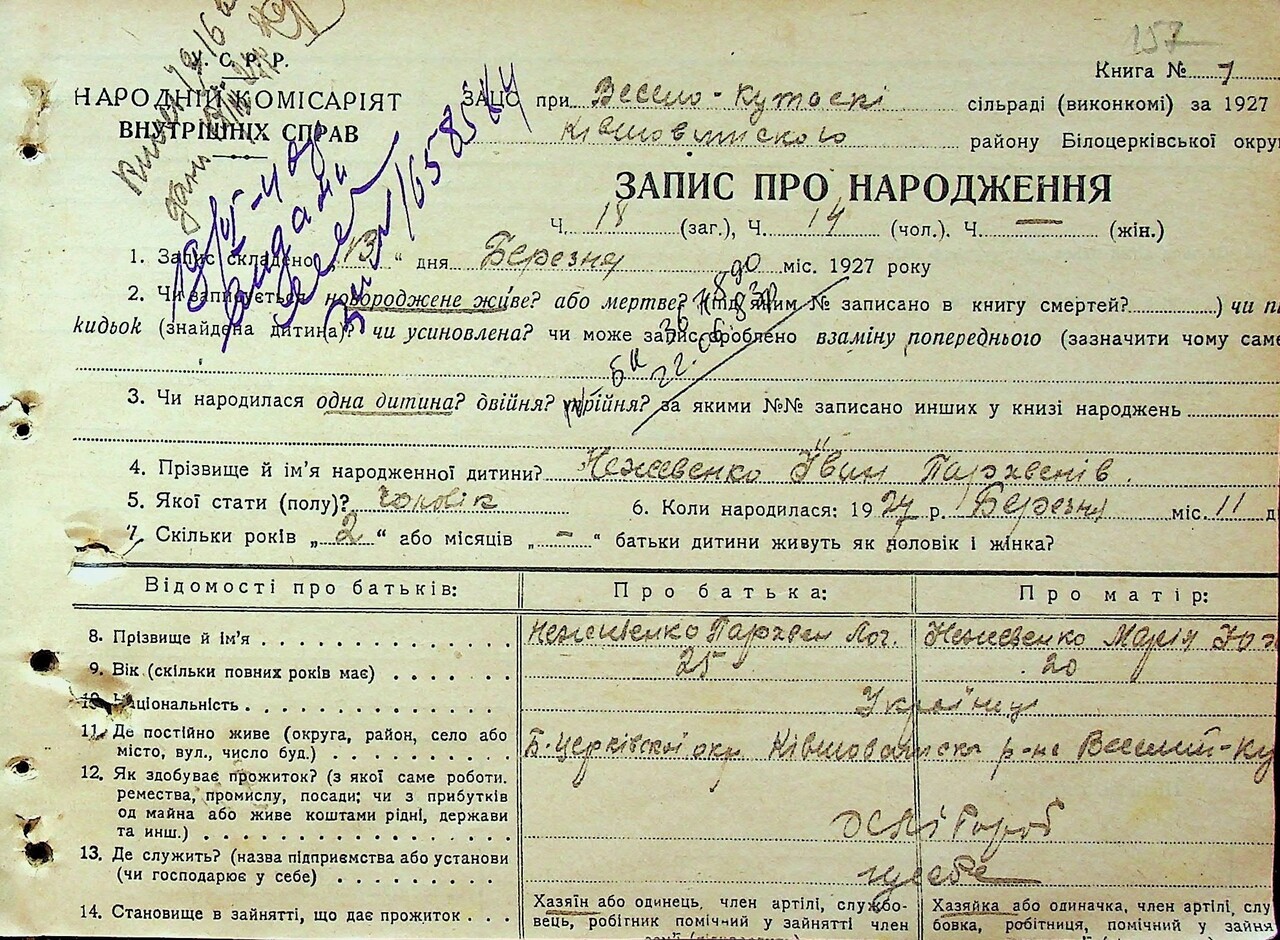 157
У.С.Р.Р.
Книга № 7
НАРОДНІЙ КОМІСАРІЯТ
ВНУТРІШНІХ СПРАВ
ЗАЦС при Весело-Кутоскі сільраді (виконкомі) за 1927
Ківшоватского району Білоцерківської окру
ЗАПИС ПРО НАРОДЖЕННЯ
Ч. 18 (заг.), Ч. 14 (чол.). Ч. — (жін.)
1. Запис складено „13“ дня Березня міс. 1927 року
2. Чи записується новороджене живе? або мертве? (під яким № записано в книгу смертей?............) чи пі
кидьок (знайдена дитина)? чи усиновлена? чи може запис зроблено взаміну попереднього (зазначити чому саме
3. Чи народилась одна дитина? двійня? трійня? за якими №№ записано инших у книзі народжень
4. Прізвище й ім'я народженної дитини? Нежевенко Іван Пархвенів.
5. Якої стати (полу)? чоловік 6. Коли народилася: 1927 р. Березня міс. 11 д
7. Скільки років „2“ або місяців „–“ батьки дитини живуть як чоловік і жінка?
Відомості про батьків: Про батька: Про матір:
8. Прізвище й ім'я Нежевенко Пархвен Лог. Нежевенко Марія
9. Вік (скільки повних років має) 25 20
10. Національність Українці
11. Де постійно живе (округа, район, село або
місто, вул., число буд.) Б-Церківскої окр. Ківшоватска р-не Веселий-Ку
12. Як здобуває прожиток? (з якої саме роботи.
ремества, промислу, посади; чи з прибутків
од майна або живе коштами рідні, держави
та инш.) Хлібороб
13. Де служить? (назва підприємства або установи
(чи господарює у себе) у себе
14. Становище в зайнятті, що дає прожиток . . . Хазяїн або одинець, член артілі, службо- Хазяйка або одиначка, член артілі, слу
вець, робітник помічний у зайнятті член бовка, робітниця, помічний у зайня